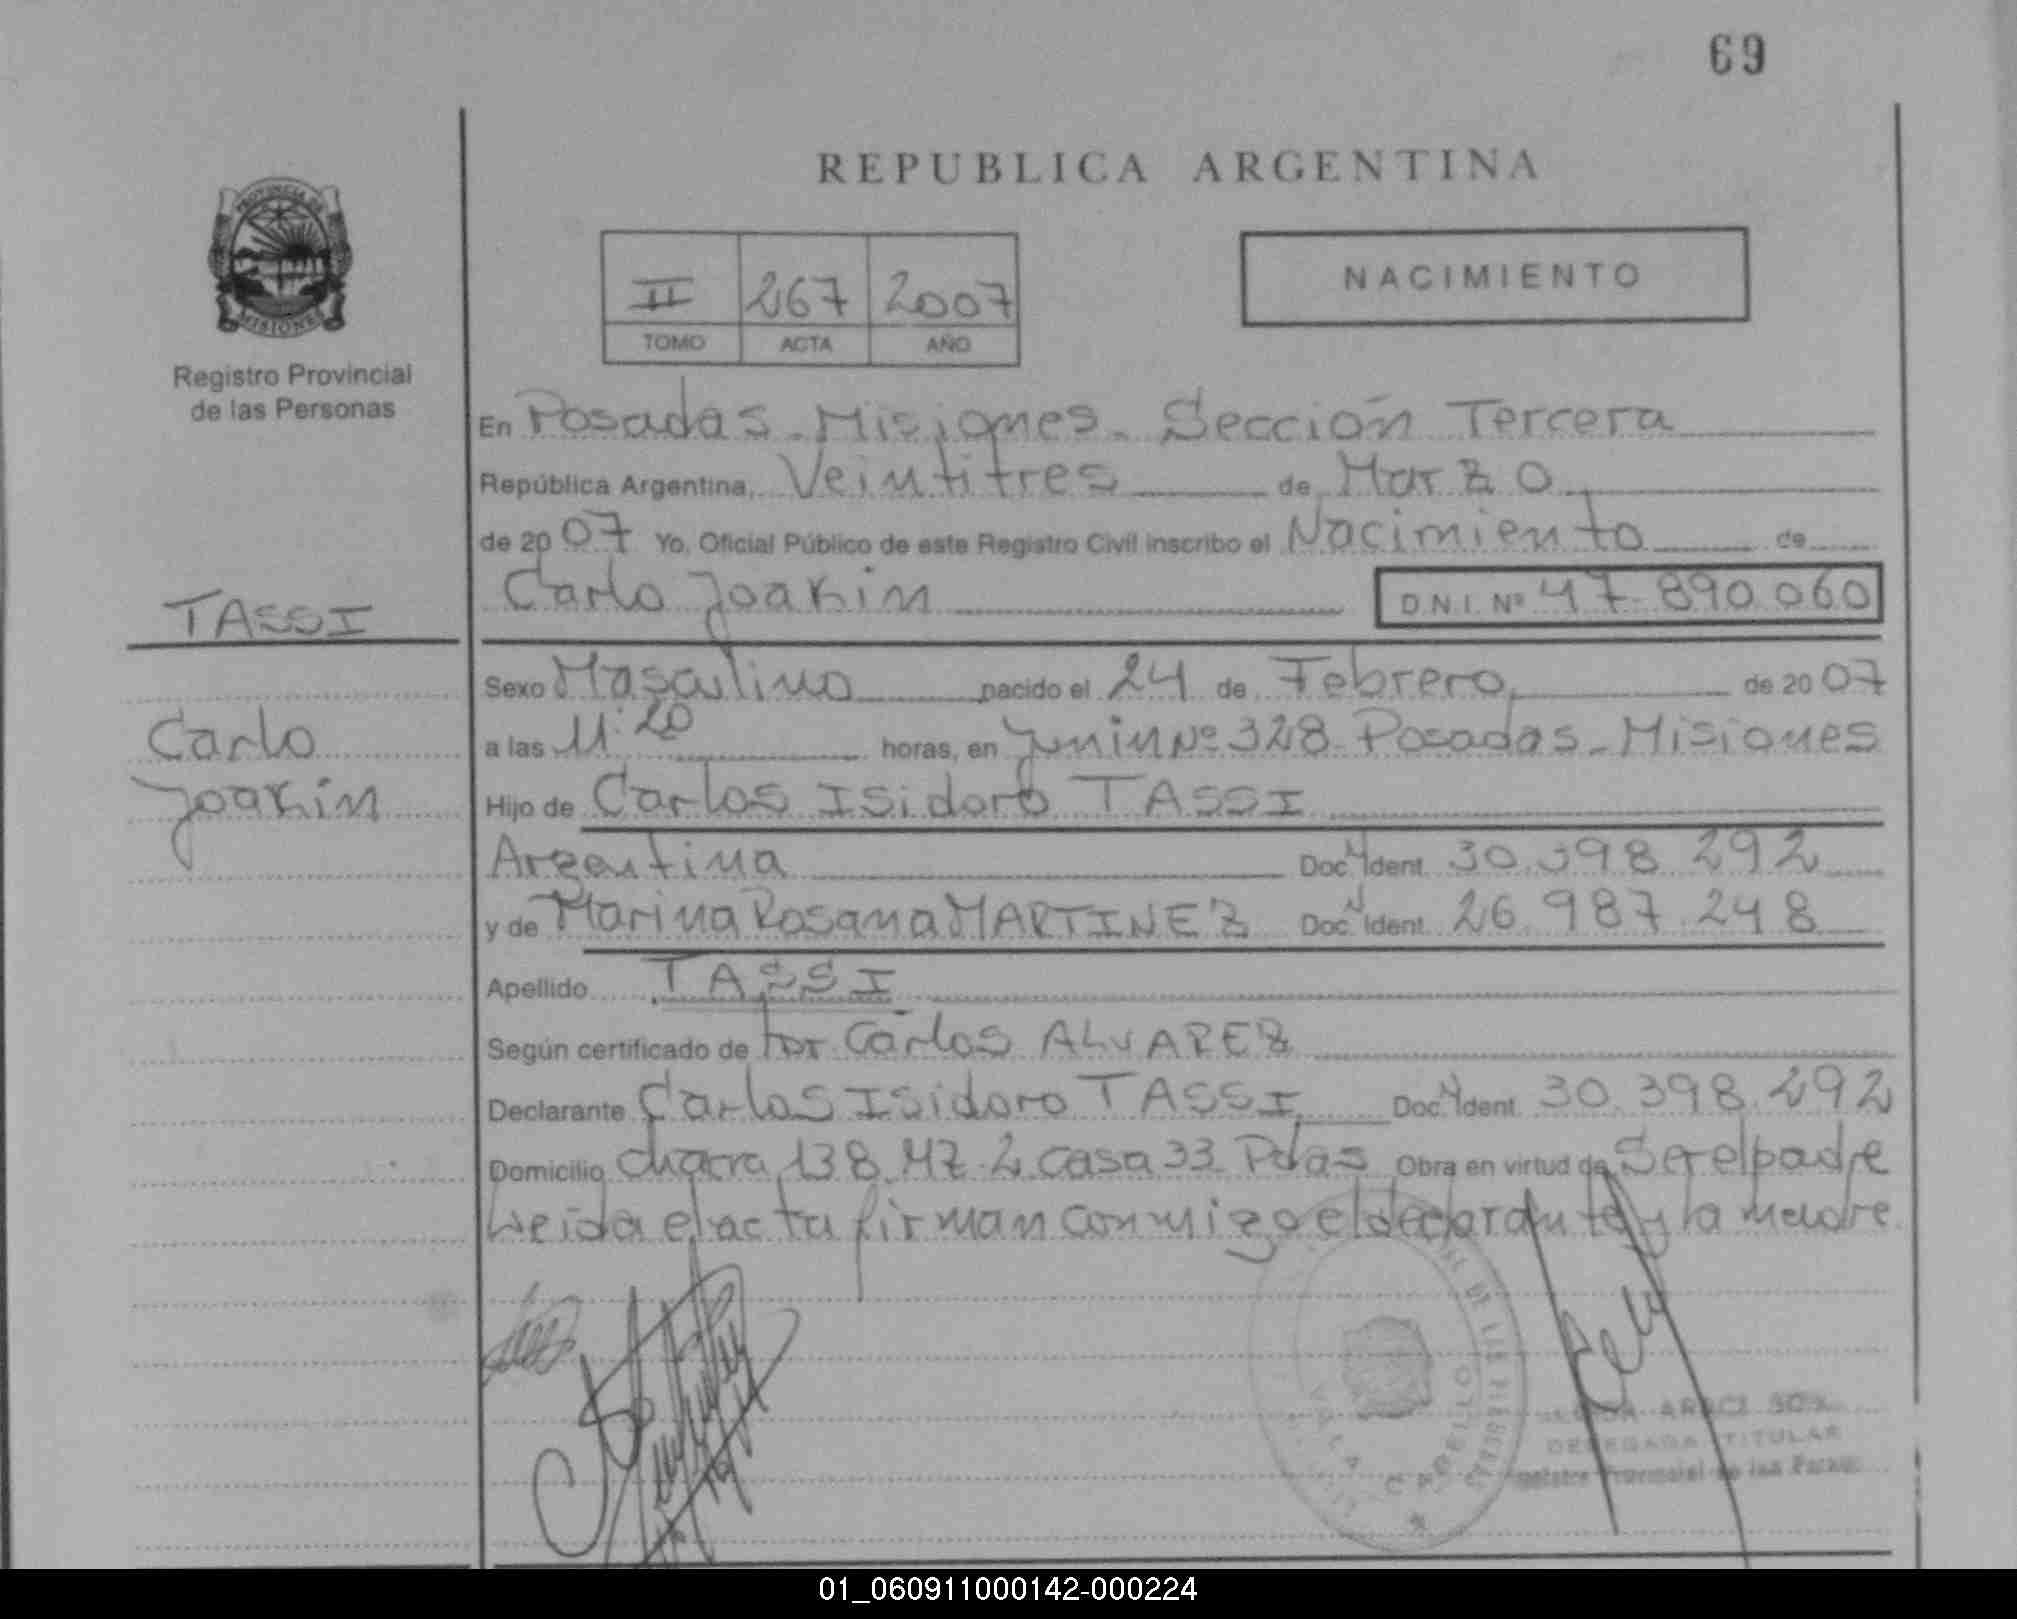 69
REPUBLICA ARGENTINA
PROVINCIA DE
MISIONES
Registro Provincial
de las Personas
II 267 2007
TOMO ACTA AÑO
NACIMIENTO
En Posadas - Misiones - Sección Tercera
República Argentina, Veintitres de Marzo
de 2007 Yo, Oficial Público de este Registro Civil inscribo el Nacimiento de
Carlo Joakin D.N.I. Nº 47.890.060
TASSI
Carlo
Joakin
Sexo Masculino nacido el 24 de Febrero de 2007
a las 11:20 horas, en Junin Nº 328 Posadas - Misiones
Hijo de Carlos Isidoro TASSI
Argentina Doc. Ident. 30.398.292
y de Marina Rosana MARTINEZ Doc. Ident. 26.987.248
Apellido TASSI
Según certificado de Carlos ALVAREZ
Declarante Carlos Isidoro TASSI Doc. Ident. 30.398.292
Domicilio chacra 138 MZ. 2 casa 33 Pdas Obra en virtud de Ser el padre
Leida el acta firman conmigo el declarante y la madre
VILLA CABELLO
DELEGADA TITULAR
Registro Provincial de las
01_060911000142-000224